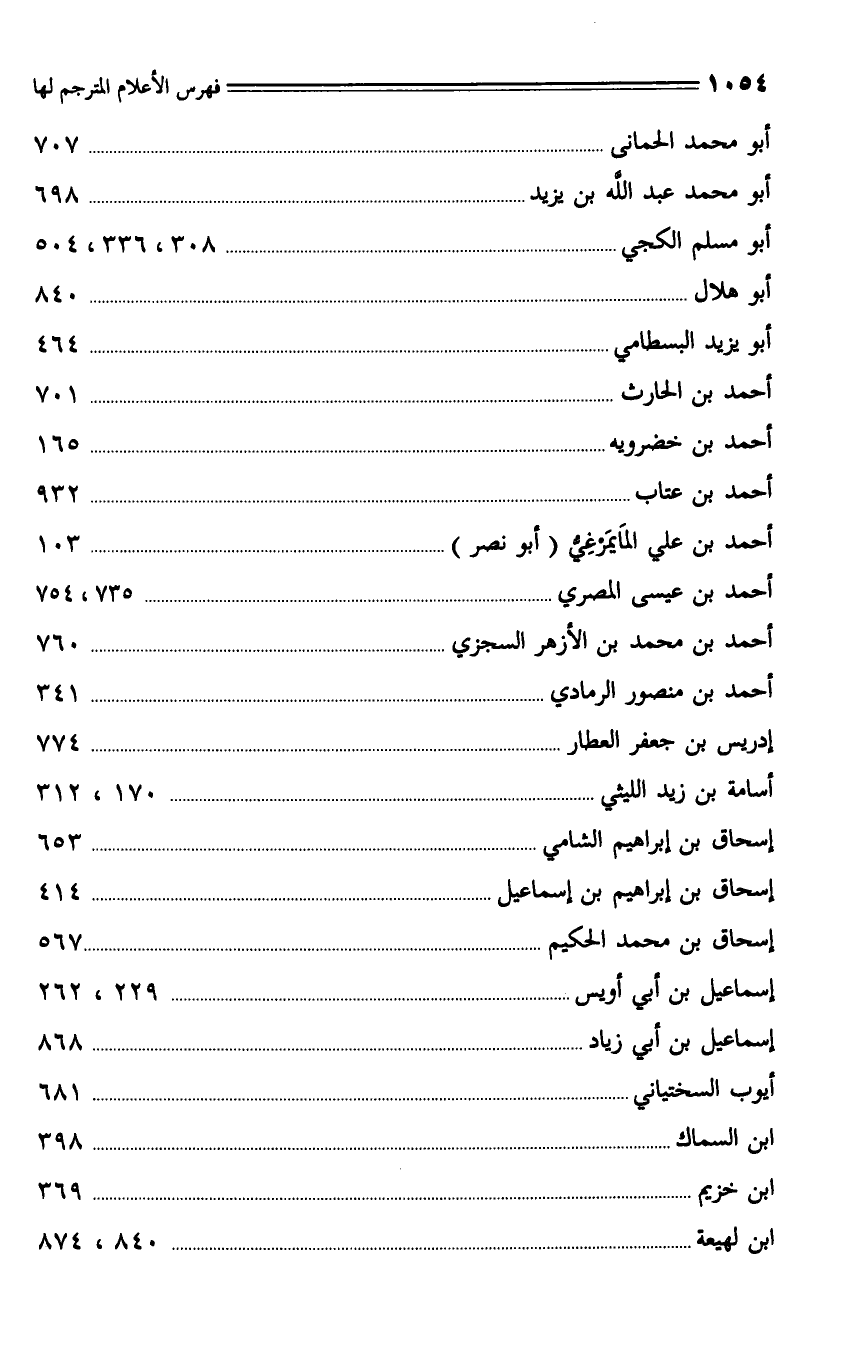 ١٠٥٤ فهرس الأعلام المترجم لها
أبو محمد الحمانى ٧٠٧
أبو محمد عبد اللَّه بن يزيد ٦٩٨
أبو مسلم الكجي ٣٠٨ ، ٣٣٦ ، ٥٠٤
أبو هلال ٨٤٠
أبو يزيد البسطامي ٤٦٤
أحمد بن الحارث ٧٠١
أحمد بن خضرويه ١٦٥
أحمد بن عتاب ٩٣٢
أحمد بن علي المَايَمَرْغِيُّ ( أبو نصر ) ١٠٣
أحمد بن عيسى المصري ٧٣٥ ، ٧٥٤
أحمد بن محمد بن الأزهر السجزي ٧٦٠
أحمد بن منصور الرمادي ٣٤١
إدريس بن جعفر العطار ٧٧٤
أسامة بن زيد الليثي ١٧٠ ، ٣١٢
إسحاق بن إبراهيم الشامي ٦٥٣
إسحاق بن إبراهيم بن إسماعيل ٤١٤
إسحاق بن محمد الحكيم ٥٦٧
إسماعيل بن أبي أويس ٢٢٩ ، ٢٦٢
إسماعيل بن أبي زياد ٨٦٨
أيوب السختياني ٦٨١
ابن السماك ٣٩٨
ابن خزيم ٣٦٩
ابن لهيعة ٨٤٠ ، ٨٧٤